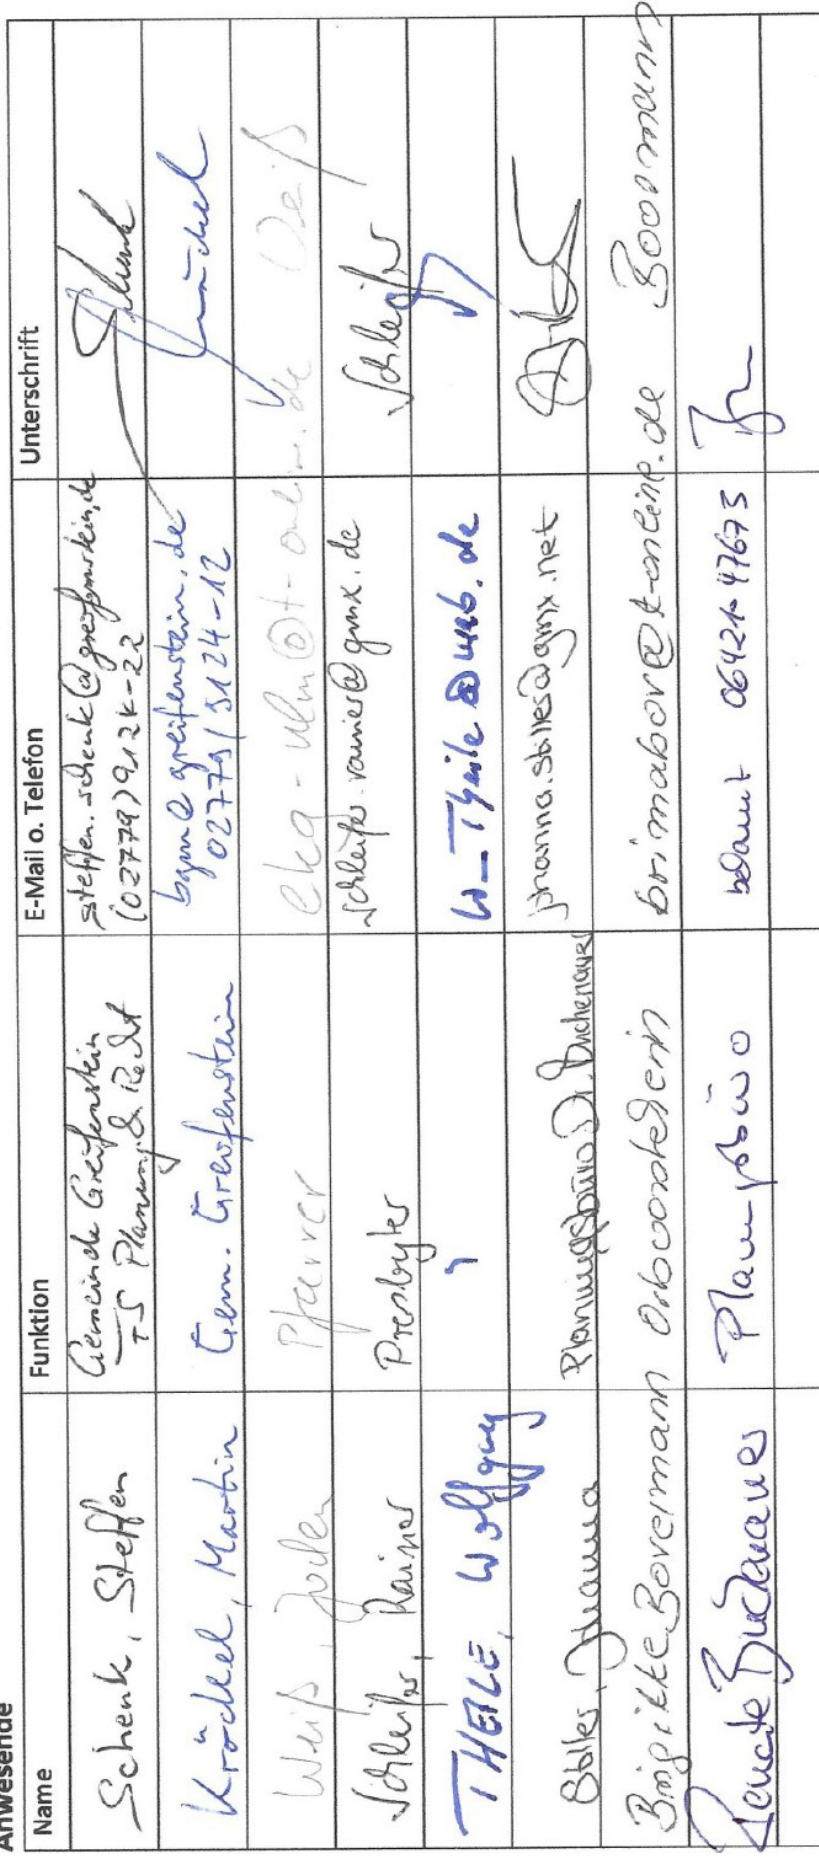 Anwesende
Name Funktion E-Mail o. Telefon Unterschrift
Schenk, Steffen Gemeinde Greifenstein steffen.schenk@greifenstein.de Schenk
TS Planung & Recht (02779) 9124-22
Kröckel, Martin Gem. Greifenstein bgm@greifenstein.de Kröckel
02779/9124-12
Weiß, Jochen Pfarrer ekg-ulm@t-online.de Weiß
Schleifer, Rainer Presbyter schleifer.rainer@gmx.de Schleifer
THEILE, Wolfgang " W_Theile@web.de
Stalles, Johanna Planungsbüro Dr. Buchenauer johanna.stalles@gmx.net
Brigitte Bovermann Ortsvorsteherin brimabov@t-online.de Bovermann
Renate Buchenauer Planungsbüro bekannt 06421-47673